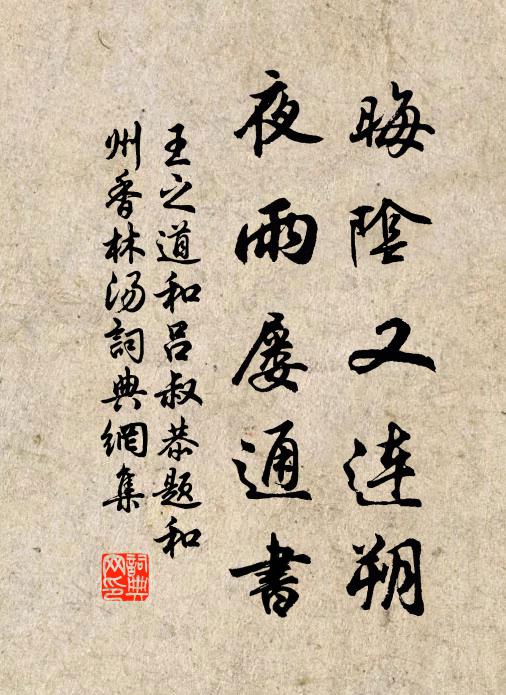 晦陰又連朔
夜雨屡通書
王之道和吕叔恭题和
州香林汤詞典網集
詞典网印